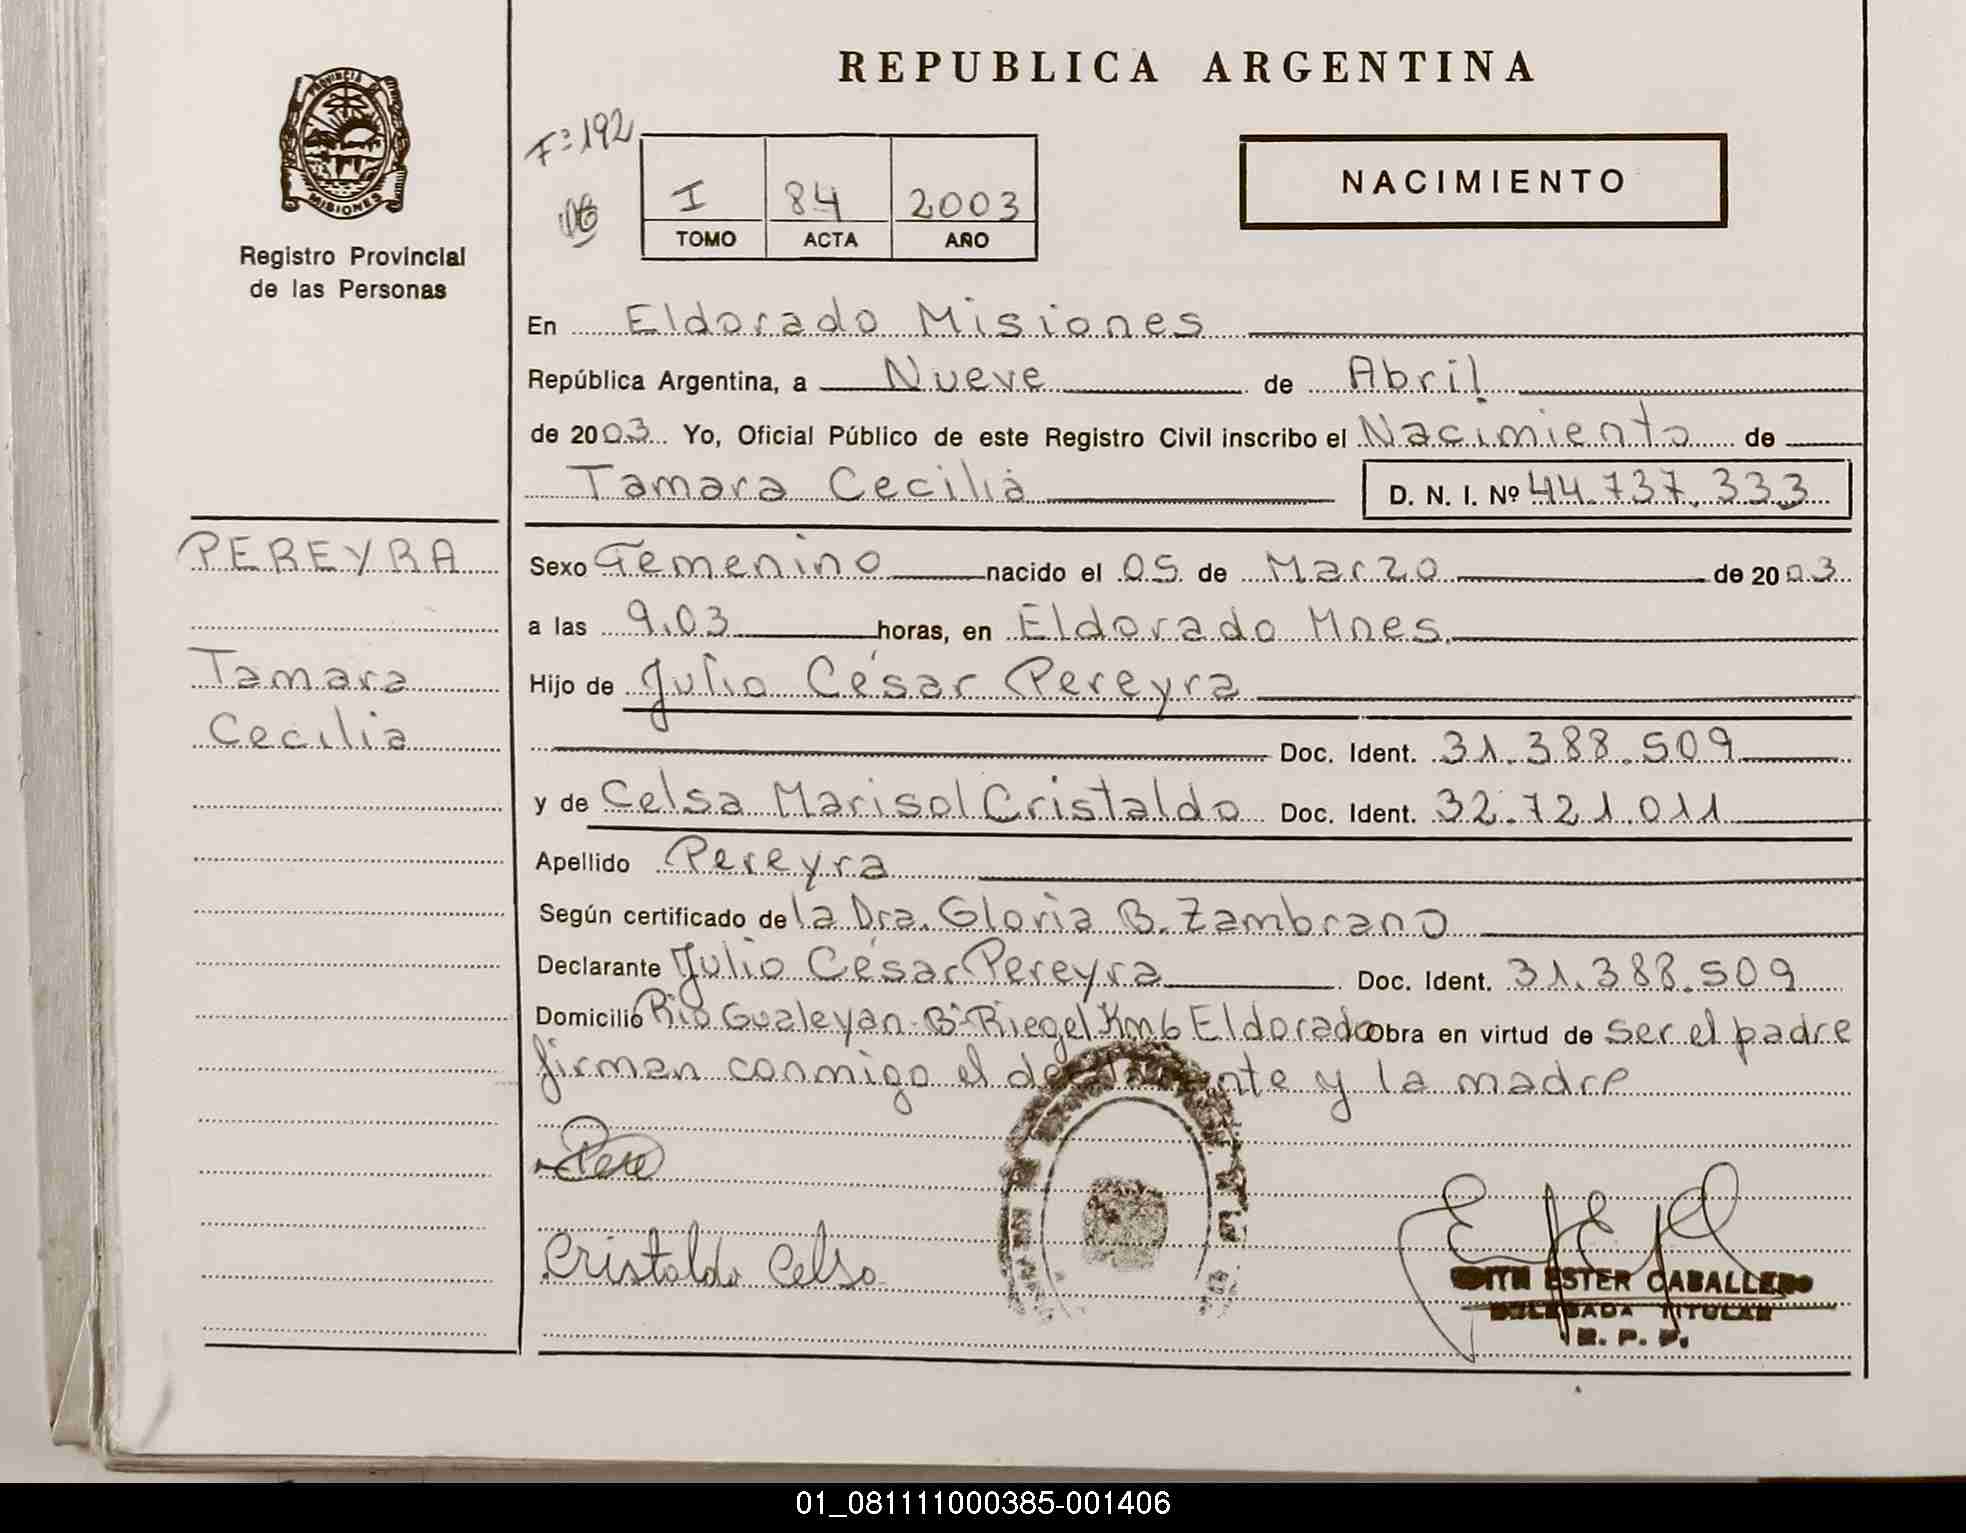 REPUBLICA ARGENTINA
PROVINCIA DE
MISIONES
Registro Provincial
de las Personas
Fº 192
I 84 2003
TOMO ACTA AÑO
NACIMIENTO
En Eldorado Misiones
República Argentina, a Nueve de Abril
de 2003 Yo, Oficial Público de este Registro Civil inscribo el Nacimiento de
Tamara Cecilia D. N. I. Nº 44.737.333
PEREYRA
Tamara
Cecilia
Sexo Femenino nacido el 05 de Marzo de 2003
a las 9.03 horas, en Eldorado Mnes.
Hijo de Julio César Pereyra
Doc. Ident. 31.388.509
y de Celsa Marisol Cristaldo Doc. Ident. 32.721.011
Apellido Pereyra
Según certificado de la Dra. Gloria B. Zambrano
Declarante Julio César Pereyra Doc. Ident. 31.388.509
Domicilio Rio Gualeyan-Bº-Riegel Km6 Eldorado Obra en virtud de ser el padre
firman conmigo el declarante y la madre
Pere
Cristaldo Celsa
EDITH ESTER CABALLERO
DELEGADA TITULAR
R. P. P.
01_081111000385-001406